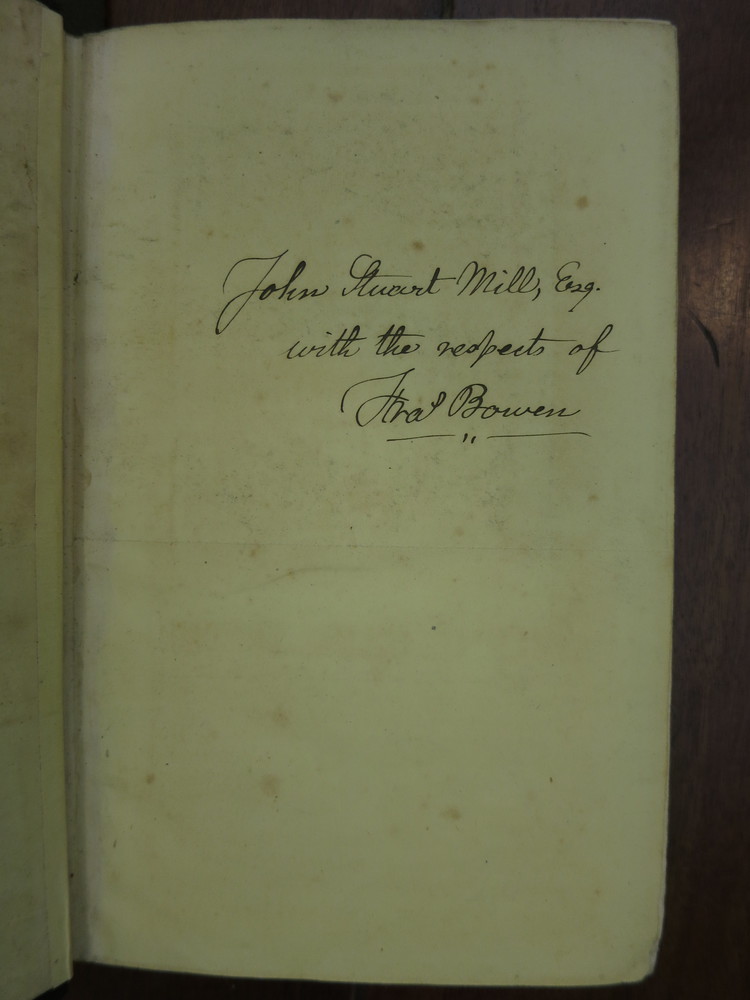 John Stuart Mill, Esq.
with the respects of
Fras Bowen